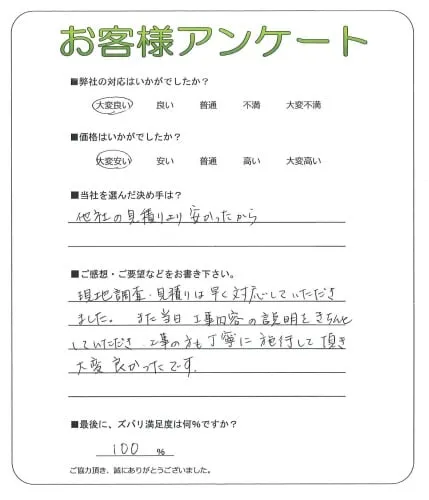 お客様アンケート
■弊社の対応はいかがでしたか？
大変良い 良い 普通 不満 大変不満
■価格はいかがでしたか？
大変安い 安い 普通 高い 大変高い
■当社を選んだ決め手は？
他社の見積りより安かったから
■ご感想・ご要望などをお書き下さい。
現地調査・見積りは早く対応していただき
ました。 また当日 工事内容の説明をきちんと
していただき 工事の方も丁寧に施行して頂き
大変良かったです。
■最後に、ズバリ満足度は何％ですか？
100 ％
ご協力頂き、誠にありがとうございました。